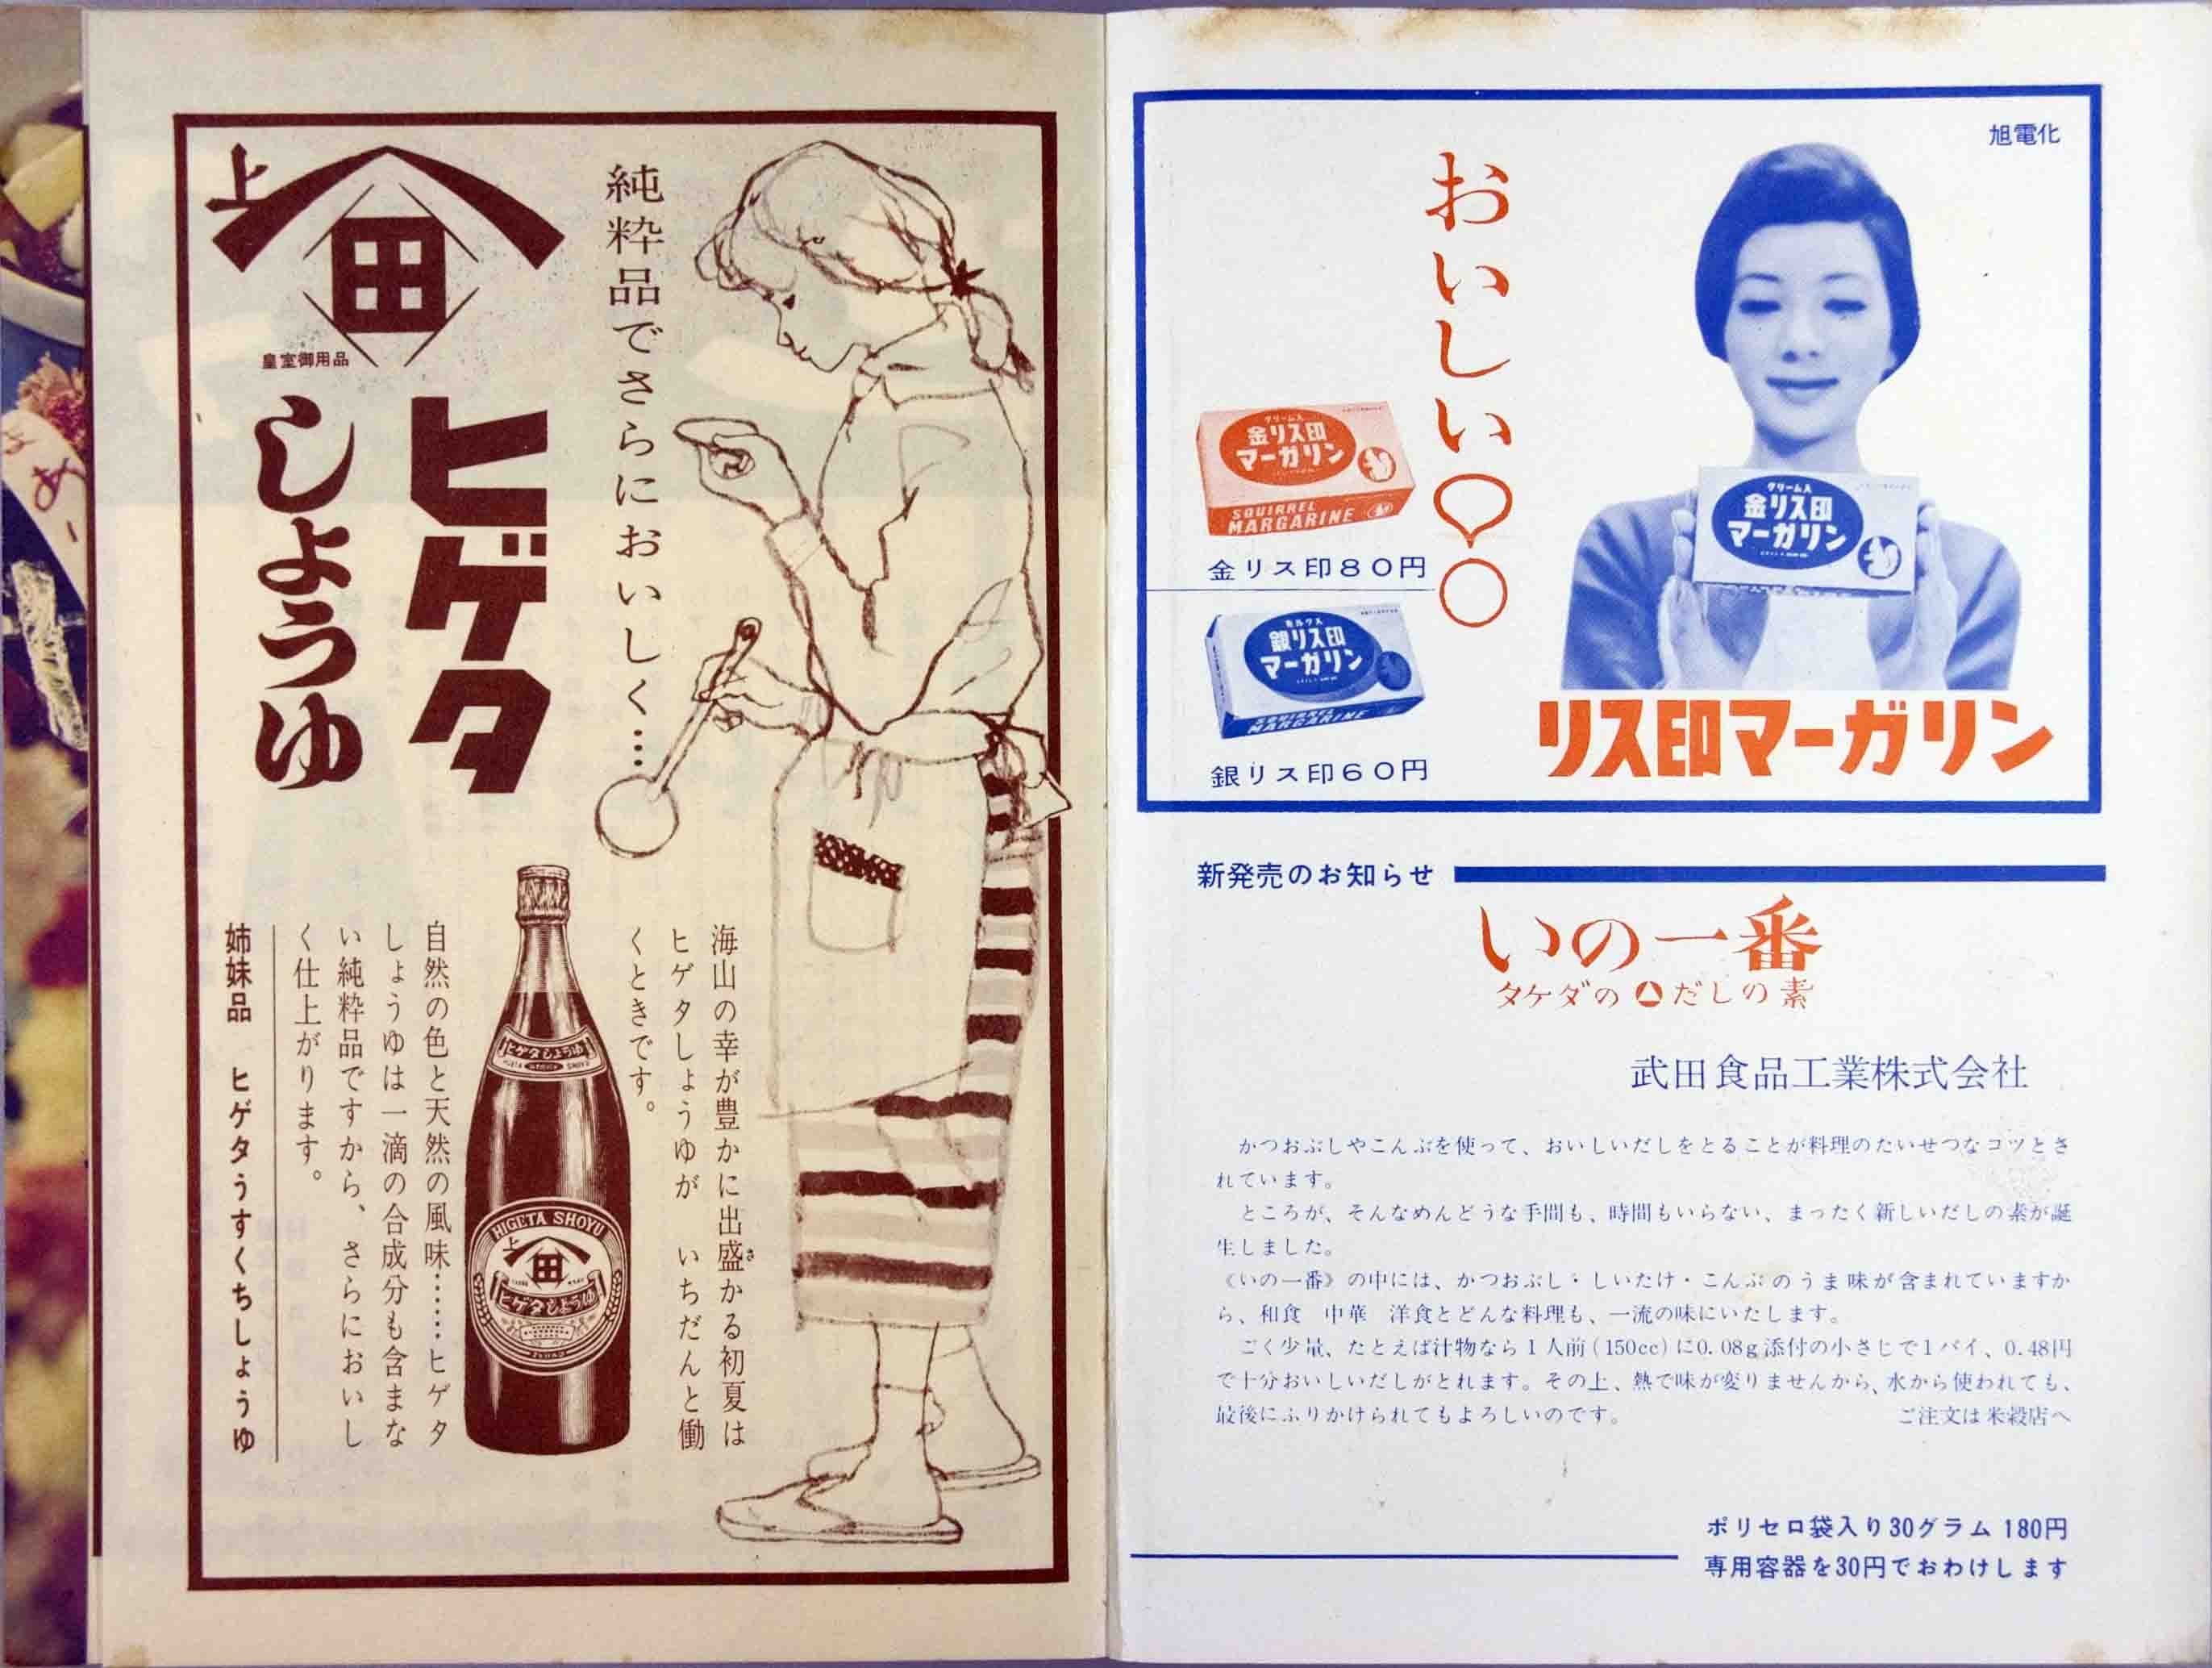 上
田
皇室御用品
ヒゲタ
しょうゆ
純粋品でさらにおいしく…
海山の幸が豊かに出盛かる初夏は
さ
ヒゲタしょうゆが いちだんと働
くときです。
ヒゲタしょうゆ
HIGETA SHOYU
上
田
ヒゲタしょうゆ
自然の色と天然の風味……ヒゲタ
しょうゆは一滴の合成分も含まな
い純粋品ですから、さらにおいし
く仕上がります。
姉妹品 ヒゲタうすくちしょうゆ
旭電化
おいしい○○
クリーム入
金リス印
マーガリン
SQUIRREL
MARGARINE
金リス印80円
ミルク入
銀リス印
マーガリン
SQUIRREL
MARGARINE
銀リス印60円
クリーム入
金リス印
マーガリン
リス印マーガリン
新発売のお知らせ
いの一番
タケダの だしの素
武田食品工業株式会社
かつおぶしやこんぶを使って、おいしいだしをとることが料理のたいせつなコツとさ
れています。
ところが、そんなめんどうな手間も、時間もいらない、まったく新しいだしの素が誕
生しました。
《いの一番》の中には、かつおぶし・しいたけ・こんぶのうま味が含まれていますか
ら、和食 中華 洋食とどんな料理も、一流の味にいたします。
ごく少量、たとえば汁物なら1人前(150cc)に0.08g添付の小さじで1パイ、0.48円
で十分おいしいだしがとれます。その上、熱で味が変りませんから、水から使われても、
最後にふりかけられてもよろしいのです。 ご注文は米穀店へ
ポリセロ袋入り30グラム 180円
専用容器を30円でおわけします